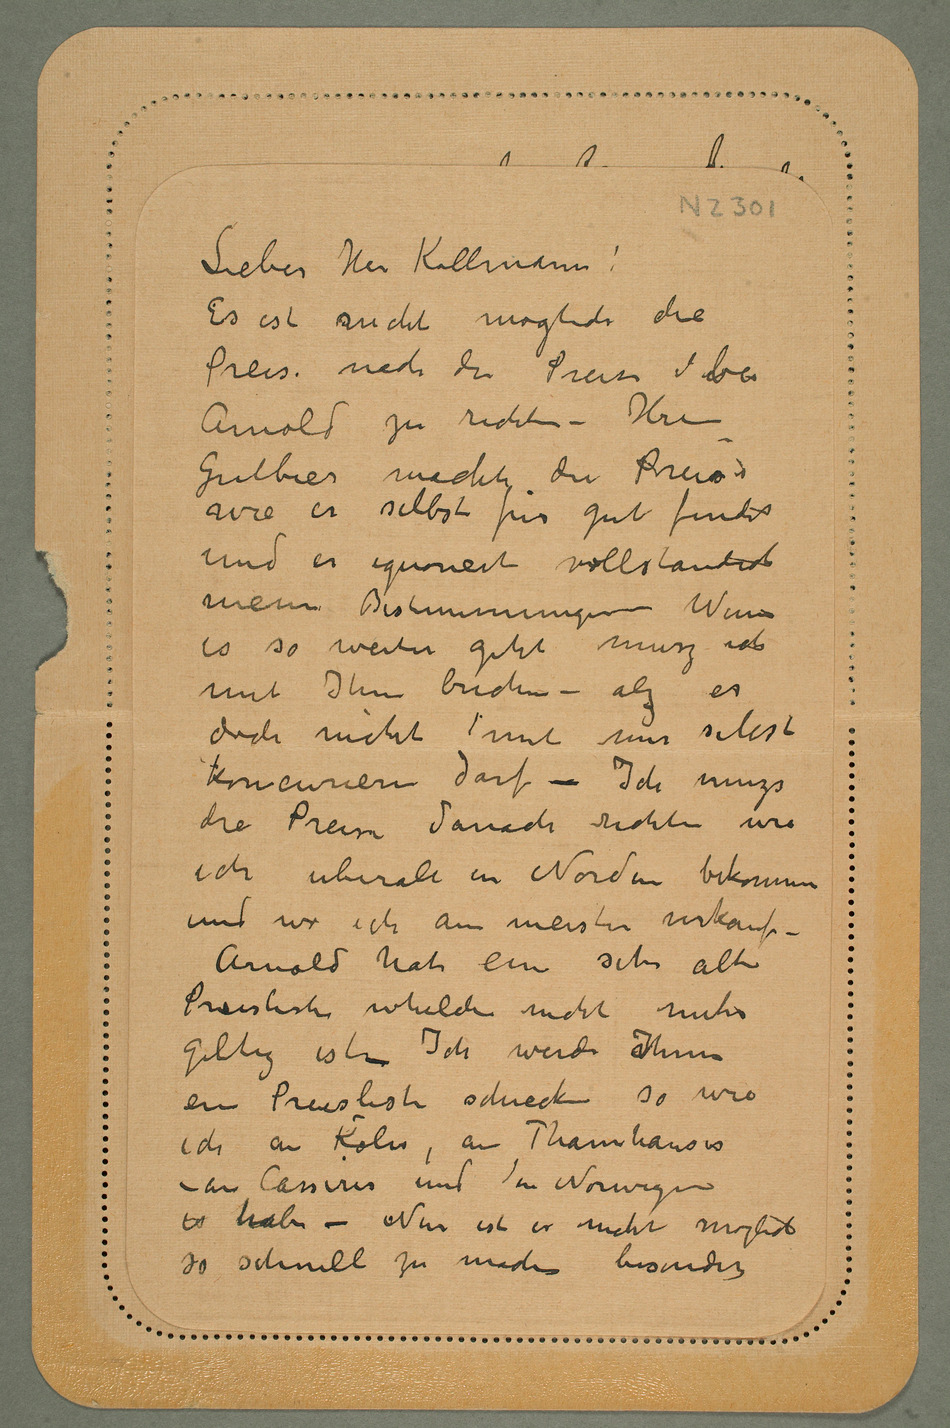 N Z 301
Lieber Her Kollmann!
Es ist nicht moglich die
Preis. nach die Preise bei
Arnold zu richten – Herr
Gutbier machte die Preise
wie er selbst für gut findet
und er ignoriert vollstandich
meine Bestimmungen Wenn
es so weiter geht musz ich
mit Ihm brechen – alz er
doch nicht mit mir selbst
koncurieren darf – Ich musz
die Preise danach richten wie
ich uberall in Norden bekommen
und wo ich am meisten verkauf –
Arnold hat ein sehr alte
Preisliste whelche nicht mehr
giltig ist – Ich werde Ihnen
ein Preisliste schicken so wie
ich an Köln, an Thannhauser
– an Cassirer und in Norwegen
es habe – Nur ist es nicht moglich
so schnell zu machen besonders